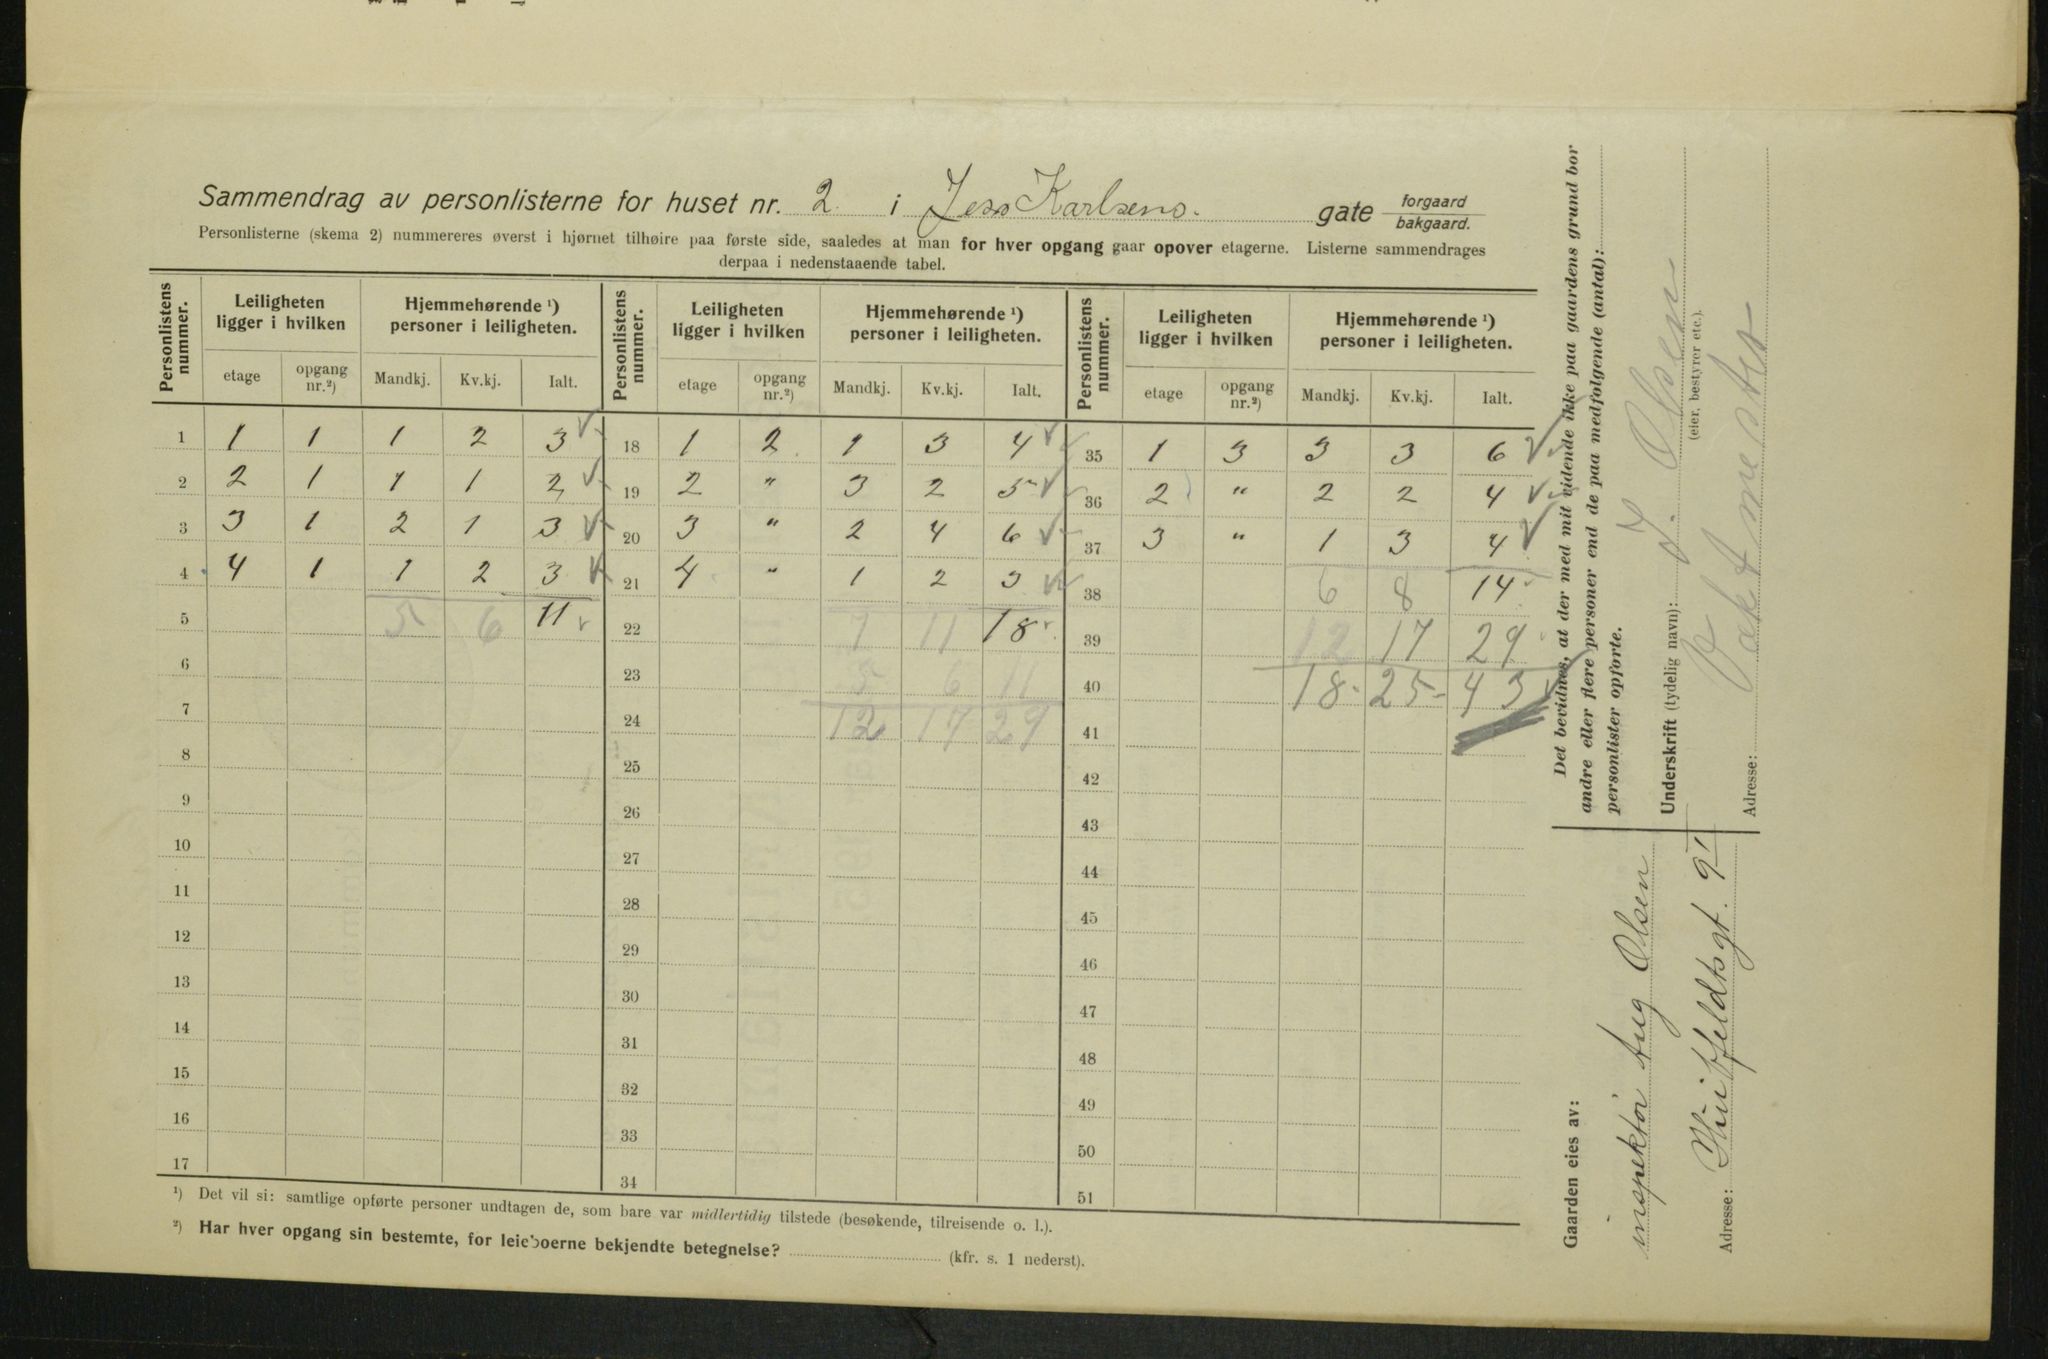 Sammendrag av personlisterne for huset nr. 2 i Jess Karlsens. gate forgaard bakgaard.
Personlisterne (skema 2) nummereres øverst i hjørnet tilhøire paa første side, saaledes at man for hver opgang gaar opover etagerne. Listerne sammendrages
derpaa i nedenstaaende tabel.
Personlistens nummer. Leiligheten ligger i hvilken Hjemmehørende ¹) personer i leiligheten. Personlistens nummer. Leiligheten ligger i hvilken Hjemmehørende ¹) personer i leiligheten. Personlistens nummer. Leiligheten ligger i hvilken Hjemmehørende ¹) personer i leiligheten.
etage opgang nr.²) Mandkj. Kv.kj. Ialt. etage opgang nr.²) Mandkj. Kv.kj. Ialt. etage opgang nr.²) Mandkj. Kv.kj. Ialt.
1 1 1 1 2 3 18 1 2 1 3 4 35 1 3 3 3 6
2 2 1 1 1 2 19 2 " 3 2 5 36 2 " 2 2 4
3 3 1 2 1 3 20 3 " 2 4 6 37 3 " 1 3 4
4 4 1 1 2 3 21 4 " 1 2 3 38 6 8 14
5 5 6 11 22 7 11 18 39 12 17 29
6 23 5 6 11 40 18 25 43
7 24 12 17 29 41
8 25 42
9 26 43
10 27 44
11 28 45
12 29 46
13 30 47
14 31 48
15 32 49
16 33 50
17 34 51
¹) Det vil si: samtlige opførte personer undtagen de, som bare var midlertidig tilstede (besøkende, tilreisende o. l.).
²) Har hver opgang sin bestemte, for leieboerne bekjendte betegnelse? (kfr. s. 1 nederst).
Det bevidnes, at der med mit vidende ikke paa gaardens grund bor
andre eller flere personer end de paa medfølgende (antal):
personlister opførte.
Underskrift (tydelig navn): J. Olsen
(eier, bestyrer etc.).
Vaktmester
Adresse:
Gaarden eies av:
inspektør Aug Olsen
Adresse: Huitfeldtsgt. 91